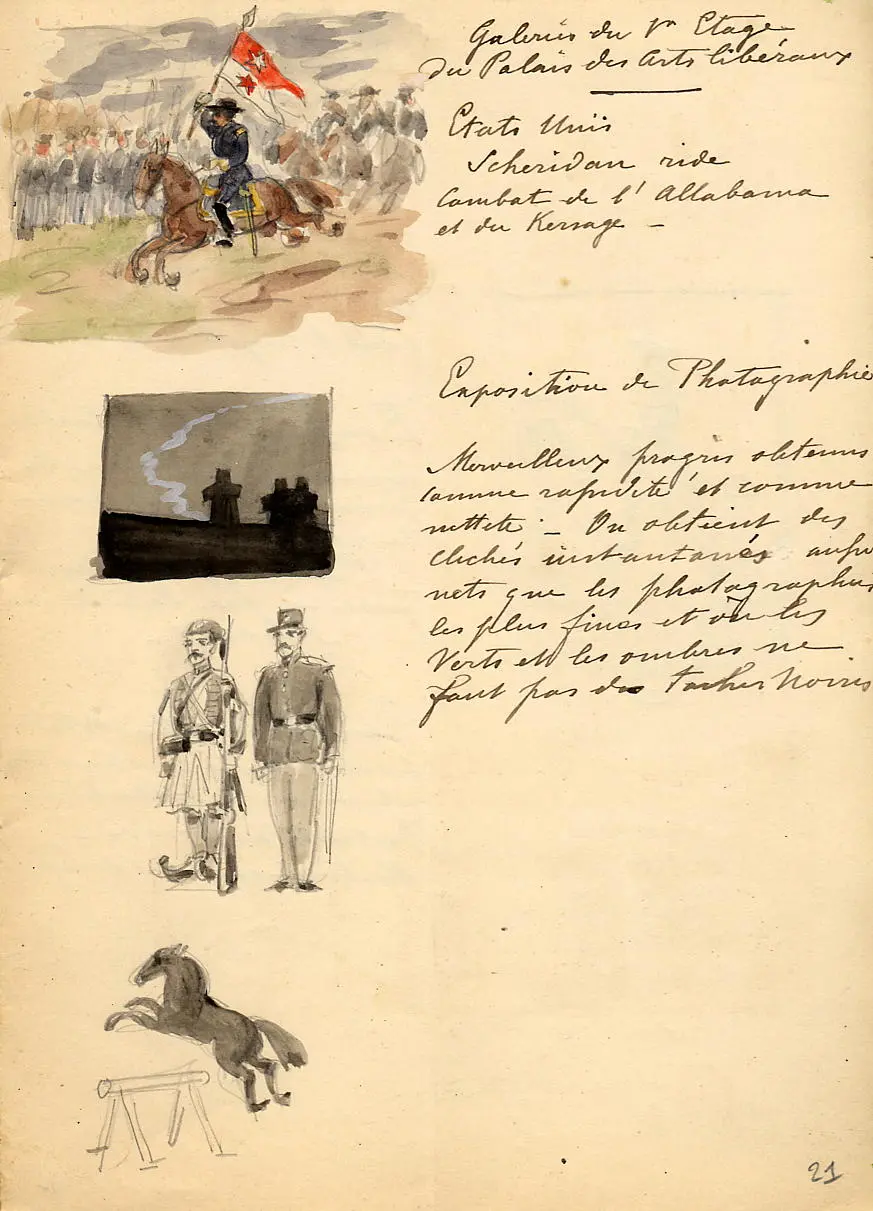 Galeries du 1er Etage
du Palais des Arts libéraux
Etats Unis
Scheridan ride
Combat de l'Allabama
et du Kersage -
Exposition de Photographie
Merveilleux progrès obtenus
comme rapidité et comme
netteté - On obtient des
clichés instantanés aussi
nets que les photographies
les plus fines et où les
Verts et les ombres ne
font pas des taches Noires
21